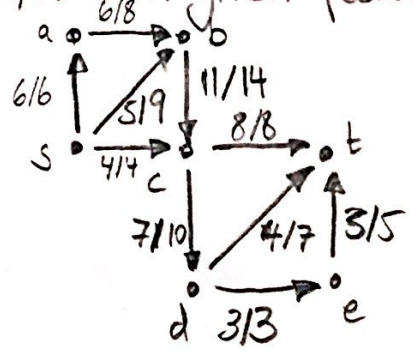 6/8
a b
6/6 5/9 11/14
8/8
s 4/4 c t
7/10 4/7 3/5
d 3/3 e